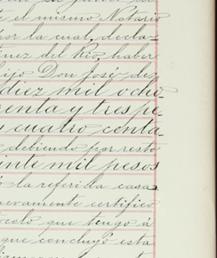 el mismo Notario
por la cual, decla-
nez del Rio, haber
hijo Don José de
diez mil ocho
renta y tres pe
y cuatro centa
debiendo por resto
inte mil pesos
la referida casa
veramente certifico
que tengo á
que concluyó esta